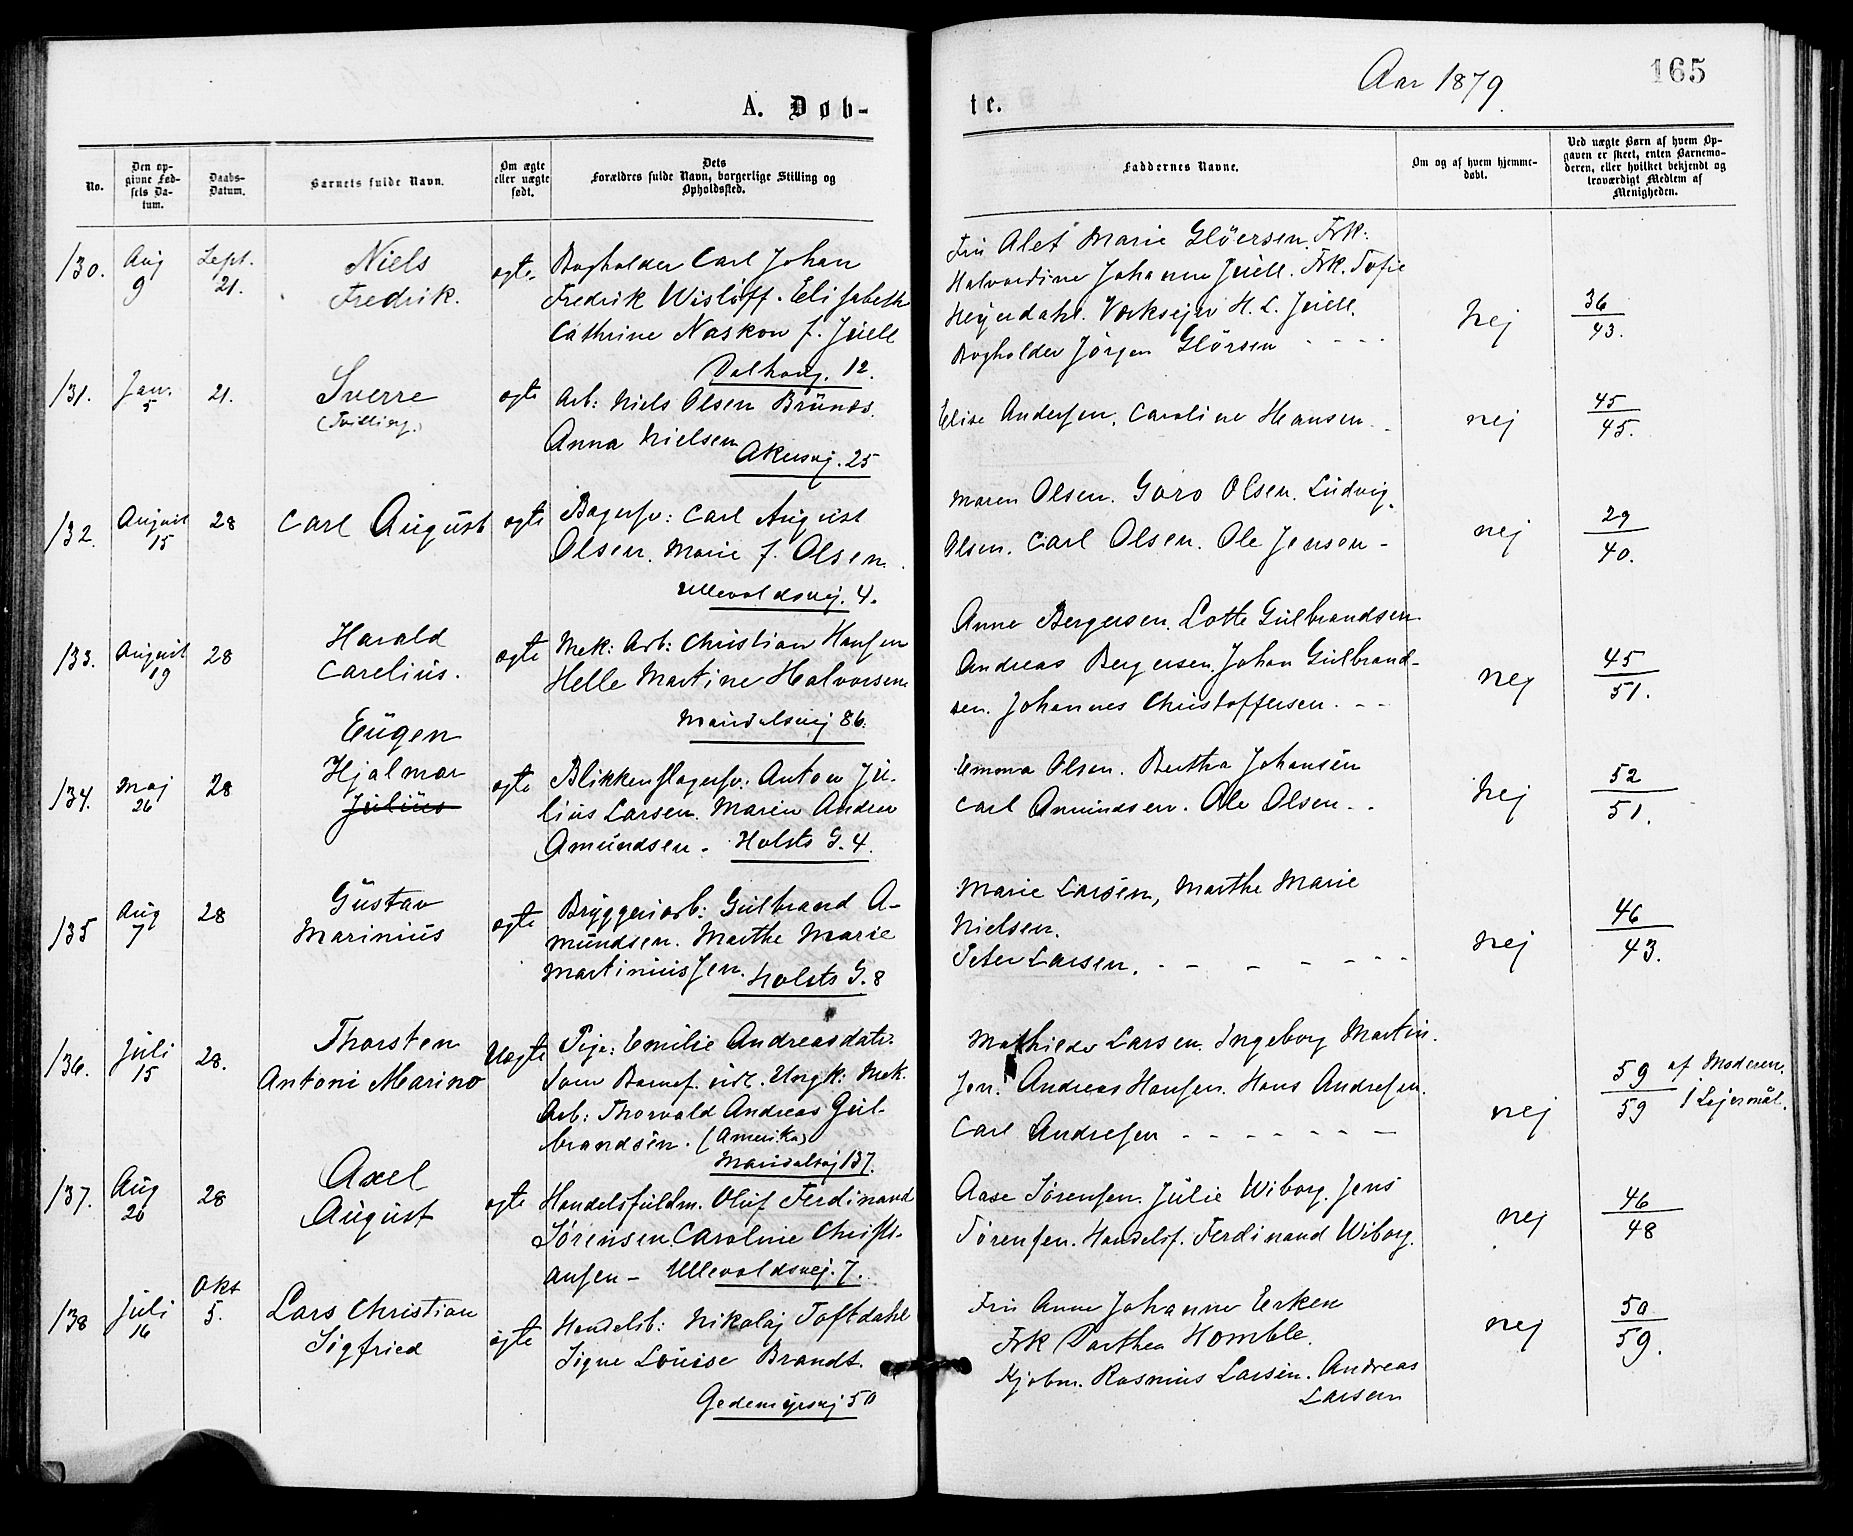 Aar 1879.
165
A. Døb-
te.
No.
Den op-
givne Fød-
sels Da-
tum.
Daabs-
Datum.
Barnets fulde Navn.
Om ægte
eller uægte
født.
Dets
Forældres fulde Navn, borgerlige Stilling og
Opholdssted.
Faddernes Navne.
Om og af hvem hjemme-
døbt.
Ved uægte Børn af hvem Op-
gaven er skeet, enten Barnemo-
deren, eller hvilket bekjendt og
troværdigt Medlem af
Menigheden.
130.
Aug
9
Sept.
21.
Niels
Fredrik.
ægte
Bogholder Carl Johan
Fredrik Wisløff. Elisabeth
Cathrine Naskow f. Juell
12.
Fru Alet Marie Gløersen. Frk:
Halvardine Johanne Juell. Frk. Sofie
Heyerdahl. Værksejer H. L. Juell.
Bogholder Jørgen Glørsen - - - -
Nej
36
43.
131.
Jan.
5
21.
Sverre
(Tvilling.)
ægte
Arb: Niels Olsen Bründs.
Anna Nielsen
Akersvej. 25
Elise Andersen. Caroline Hansen - -
nej
45
45.
132.
August
15
28
Carl August
ægte
Bagersv: Carl August
Olsen. Marie f. Olsen.
Ullevoldsvej. 4.
Maren Olsen. Goro Olsen. Ludvig
Olsen. Carl Olsen. Ole Jensen -
nej
29
40.
133.
August
19
28
Harald
Carelius.
ægte
Mek: Arb: Christian Hansen
Helle Martine Halvorsen
Maridalsvej 86.
Anne Bergersen. Lotte Gulbrandsen.
Andreas Bergersen. Johan Gulbrand-
sen. Johannes Christoffersen. - -
nej
45
51.
134.
Maj
26
28
Eugen
Hjalmar
Julius
ægte
Blikkenslagersv: Anton Ju-
lius Larsen. Maren Andrea
Amundsen - Holsts G. 4.
Emma Olsen. Bertha Johansen
Carl Amundsen. Ole Olsen - .
Nej
52
51.
135
Aug
7
28
Gustav
Marinius
ægte
Bryggeriarb: Gulbrand A-
mundsen. Marthe Marie
Martiniussen. Holsts G. 8
Marie Larsen, Marthe Marie
Nielsen.
Peter Larsen. - - - - - -
nej
46
43.
136.
Juli
15
28.
Thorsten
Antoni Marino
Uægte
Pige: Emilie Andreasdatr.
Som Barnef. udl. Ungk: Mek.
Arb: Thorvald Andreas Gul-
brandsen. (Amerika)
Maridalsvej 137.
Mathilde Larsen. Ingeborg Martin.
sen. Andreas Hansen. Hans Andresen.
Carl Andresen - - - - - - -
nej
59
59
af Moderen.
1 Lejermål.
137.
Aug
20
28
Axel
August
ægte
Handelsfuldm. Oluf Ferdinand
Sørensen. Caroline Christi-
ansen - Ullevoldsvej. 7.
Aase Sørensen. Julie Wiborg. Jens
Sørensen. Handelsf. Ferdinand Wiborg.
nej
46
48
138
Juli
16
Okt
5.
Lars Christian
Sigfried
ægte
Handelsb: Nikolaj Toftdahl
Signe Louise Brandt.
Gedemyrsvej 50
Fru Anne Johanne Eerken
Frk Dorthea Homble.
Kjøbm. Rasmus Larsen. Andreas
Larsen
nej
50
59.